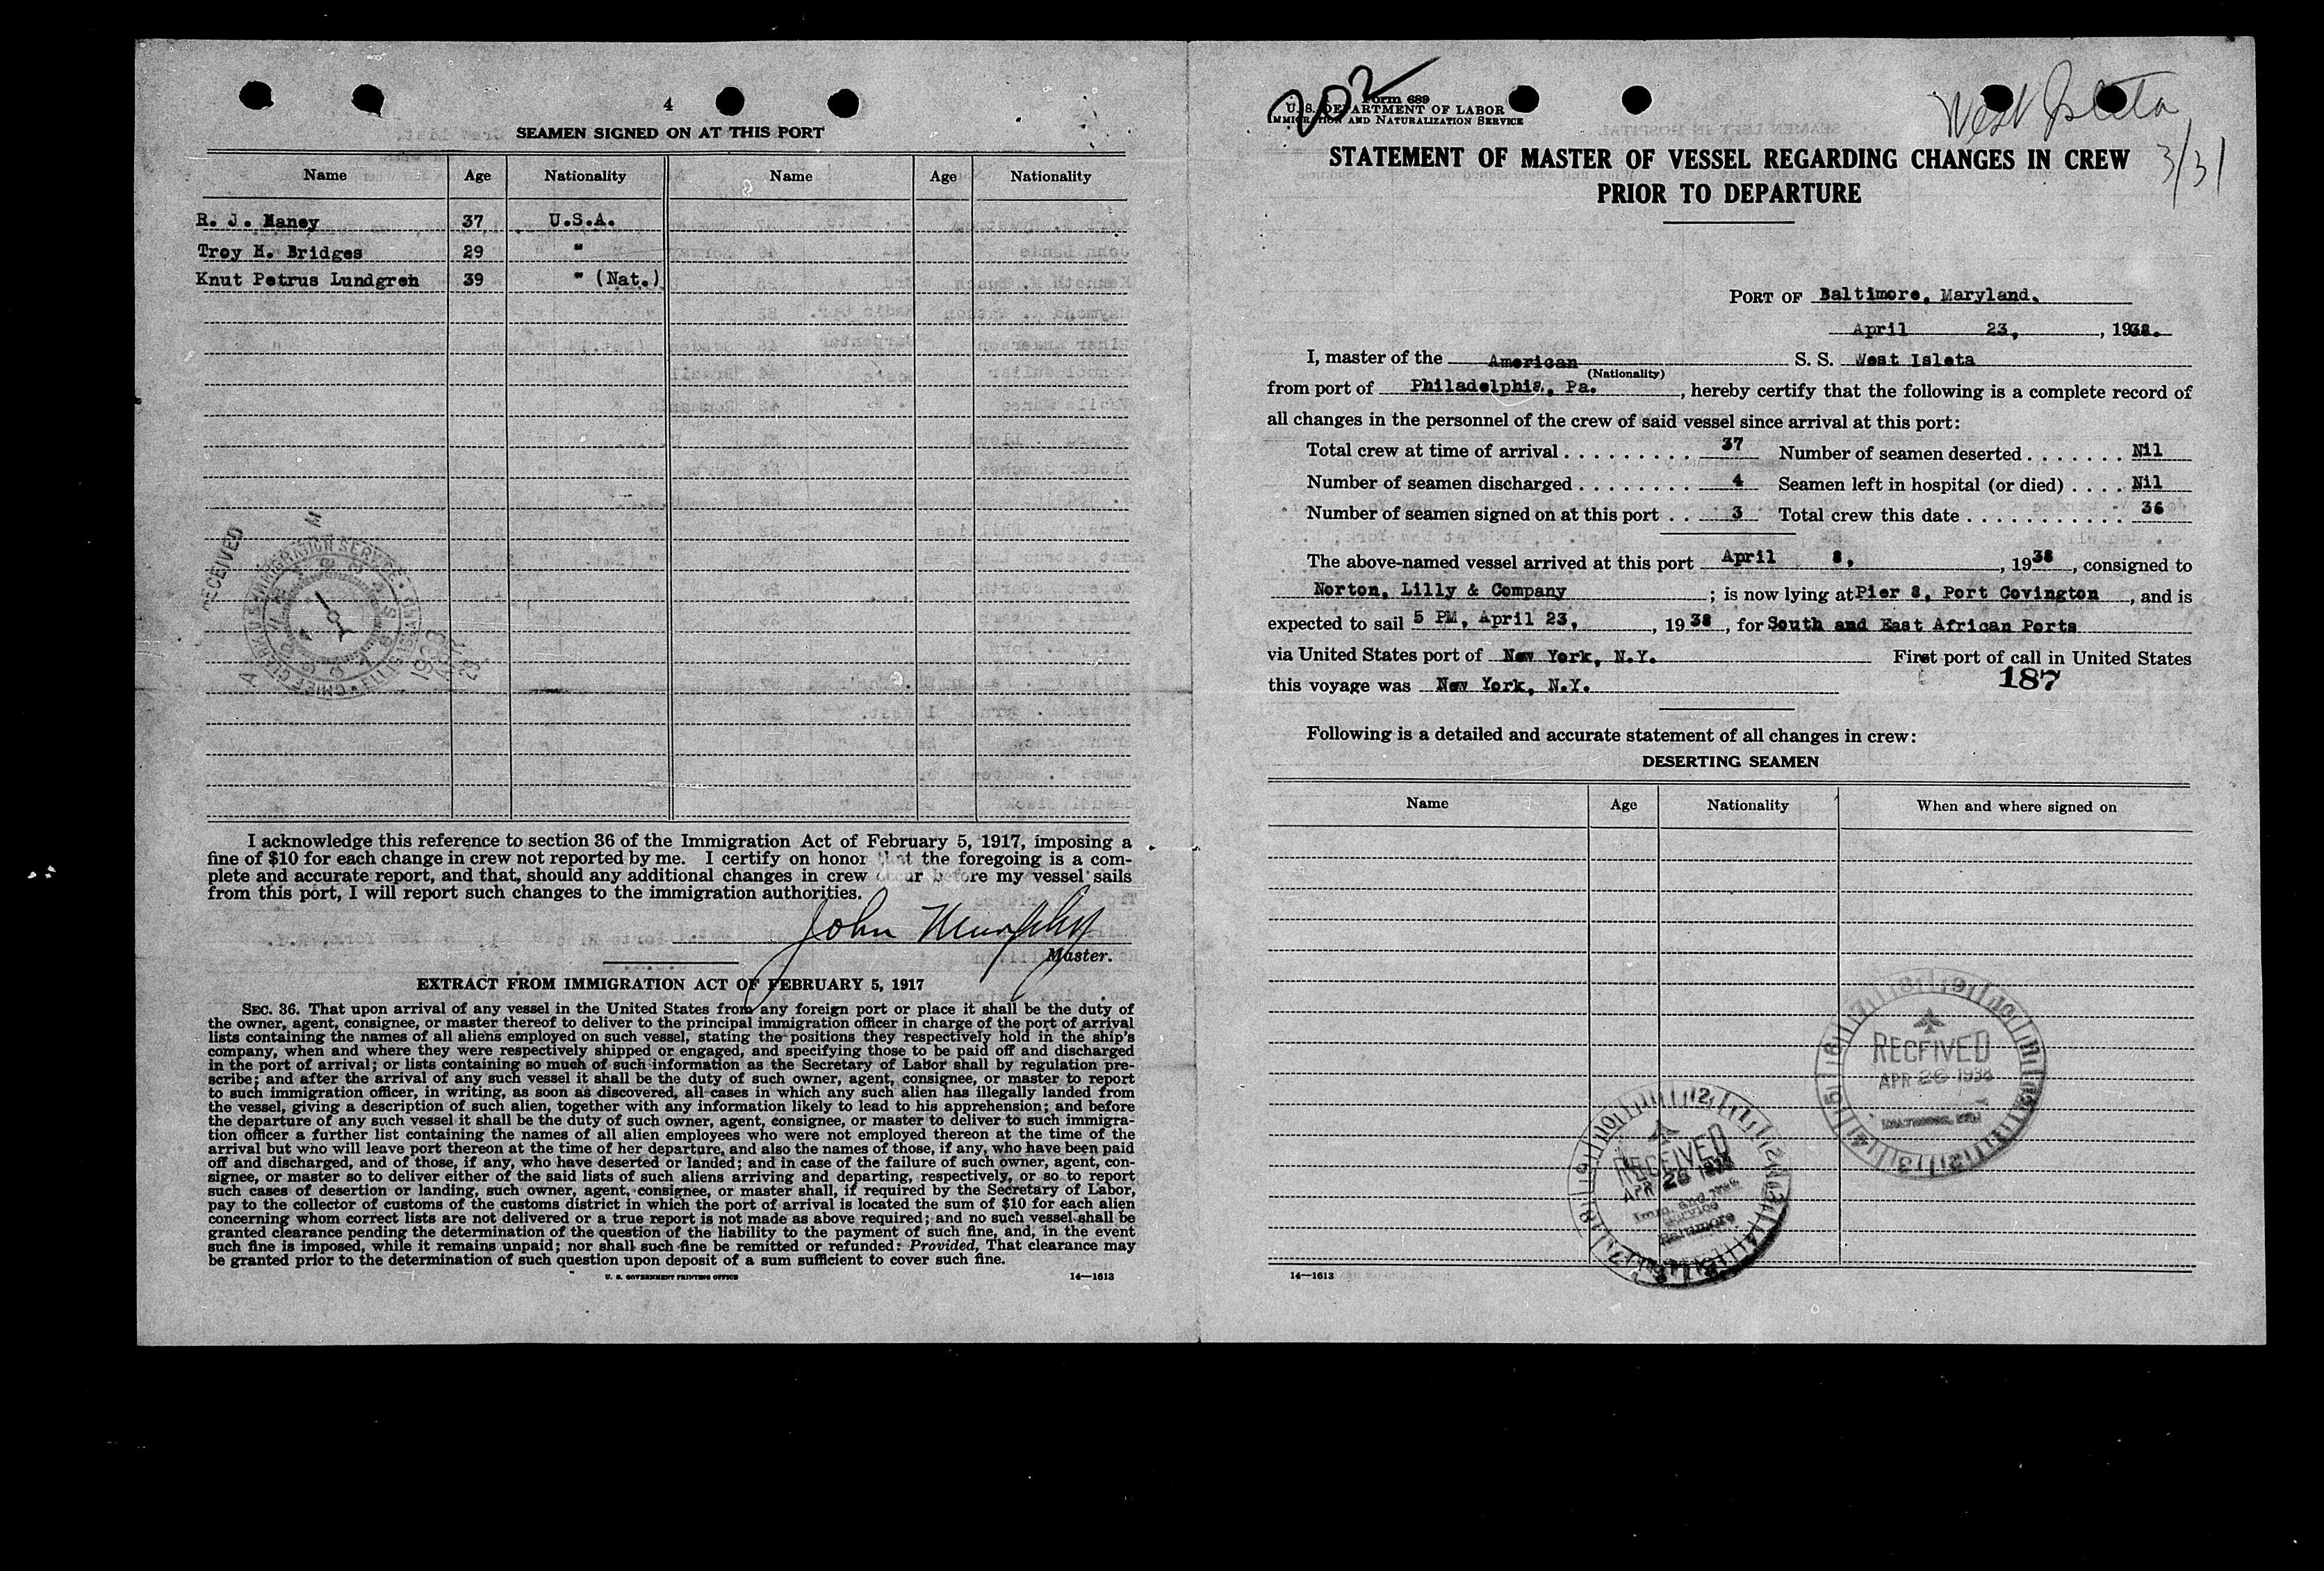 4
SEAMEN SIGNED ON AT THIS PORT
Name Age Nationality Name Age Nationality
R. J. Maney 37 U.S.A.
Troy H. Bridges 29 "
Knut Petrus Lundgren 39 " (Nat.)
RECEIVED
I acknowledge this reference to section 36 of the Immigration Act of February 5, 1917, imposing a
fine of $10 for each change in crew not reported by me. I certify on honor that the foregoing is a com-
plete and accurate report, and that, should any additional changes in crew occur before my vessel sails
from this port, I will report such changes to the immigration authorities.
John Murphy
Master.
EXTRACT FROM IMMIGRATION ACT OF FEBRUARY 5, 1917
SEC. 36. That upon arrival of any vessel in the United States from any foreign port or place it shall be the duty of
the owner, agent, consignee, or master thereof to deliver to the principal immigration officer in charge of the port of arrival
lists containing the names of all aliens employed on such vessel, stating the positions they respectively hold in the ship's
company, when and where they were respectively shipped or engaged, and specifying those to be paid off and discharged
in the port of arrival; or lists containing so much of such information as the Secretary of Labor shall by regulation pre-
scribe; and after the arrival of any such vessel it shall be the duty of such owner, agent, consignee, or master to report
to such immigration officer, in writing, as soon as discovered, all cases in which any such alien has illegally landed from
the vessel, giving a description of such alien, together with any information likely to lead to his apprehension; and before
the departure of any such vessel it shall be the duty of such owner, agent, consignee, or master to deliver to such immigra-
tion officer a further list containing the names of all alien employees who were not employed thereon at the time of the
arrival but who will leave port thereon at the time of her departure, and also the names of those, if any, who have been paid
off and discharged, and of those, if any, who have deserted or landed; and in case of the failure of such owner, agent, con-
signee, or master so to deliver either of the said lists of such aliens arriving and departing, respectively, or so to report
such cases of desertion or landing, such owner, agent, consignee, or master shall, if required by the Secretary of Labor,
pay to the collector of customs of the customs district in which the port of arrival is located the sum of $10 for each alien
concerning whom correct lists are not delivered or a true report is not made as above required; and no such vessel shall be
granted clearance pending the determination of the question of the liability to the payment of such fine, and, in the event
such fine is imposed, while it remains unpaid; nor shall such fine be remitted or refunded: Provided, That clearance may
be granted prior to the determination of such question upon deposit of a sum sufficient to cover such fine.
U. S. GOVERNMENT PRINTING OFFICE 14—1613
202
Form 689
U. S. DEPARTMENT OF LABOR
IMMIGRATION AND NATURALIZATION SERVICE
West Isleta
3/31
STATEMENT OF MASTER OF VESSEL REGARDING CHANGES IN CREW
PRIOR TO DEPARTURE
PORT OF Baltimore, Maryland.
April 23, , 1938.
I, master of the American S. S. West Isleta
(Nationality)
from port of Philadelphia, Pa. , hereby certify that the following is a complete record of
all changes in the personnel of the crew of said vessel since arrival at this port:
Total crew at time of arrival . . . . . . . . . 37 Number of seamen deserted . . . . . . . Nil
Number of seamen discharged . . . . . . . . 4 Seamen left in hospital (or died) . . . . Nil
Number of seamen signed on at this port . . 3 Total crew this date . . . . . . . . . . . 36
The above-named vessel arrived at this port April 8, , 1938 , consigned to
Norton, Lilly & Company ; is now lying at Pier 8, Port Covington , and is
expected to sail 5 PM, April 23, , 1938 , for South and East African Ports
via United States port of New York, N.Y. First port of call in United States
this voyage was New York, N.Y. 187
Following is a detailed and accurate statement of all changes in crew:
DESERTING SEAMEN
Name Age Nationality When and where signed on
RECEIVED
APR 26 1938
BALTIMORE, MD.
RECEIVED
APR 26 1938
Imm. and Nat.
Service
Baltimore
14—1613